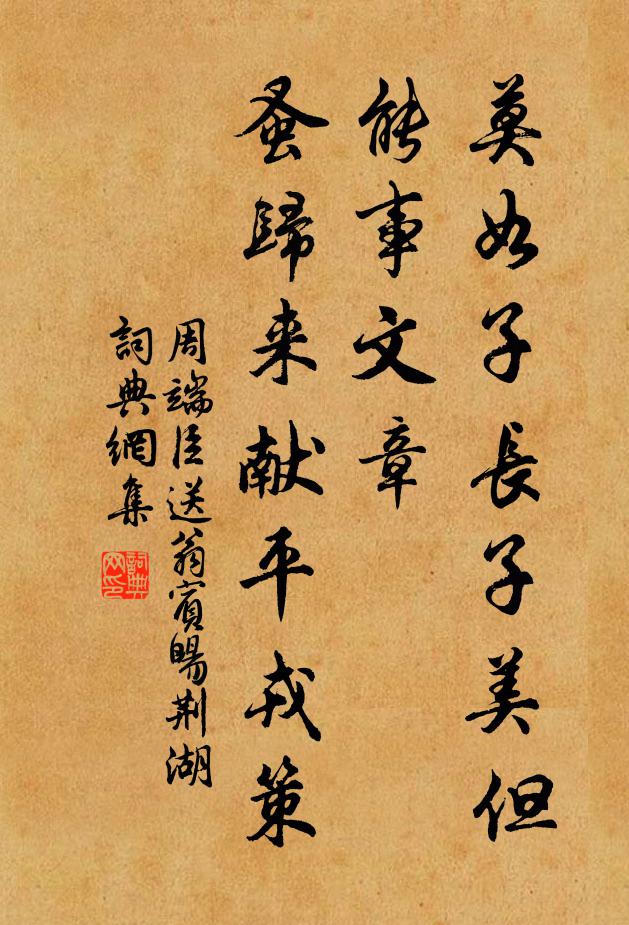 莫如子長子美但
能事文章
蚤歸来献平戎策
周端臣送翁賓暘荆湖
詞典網集
詞典网印